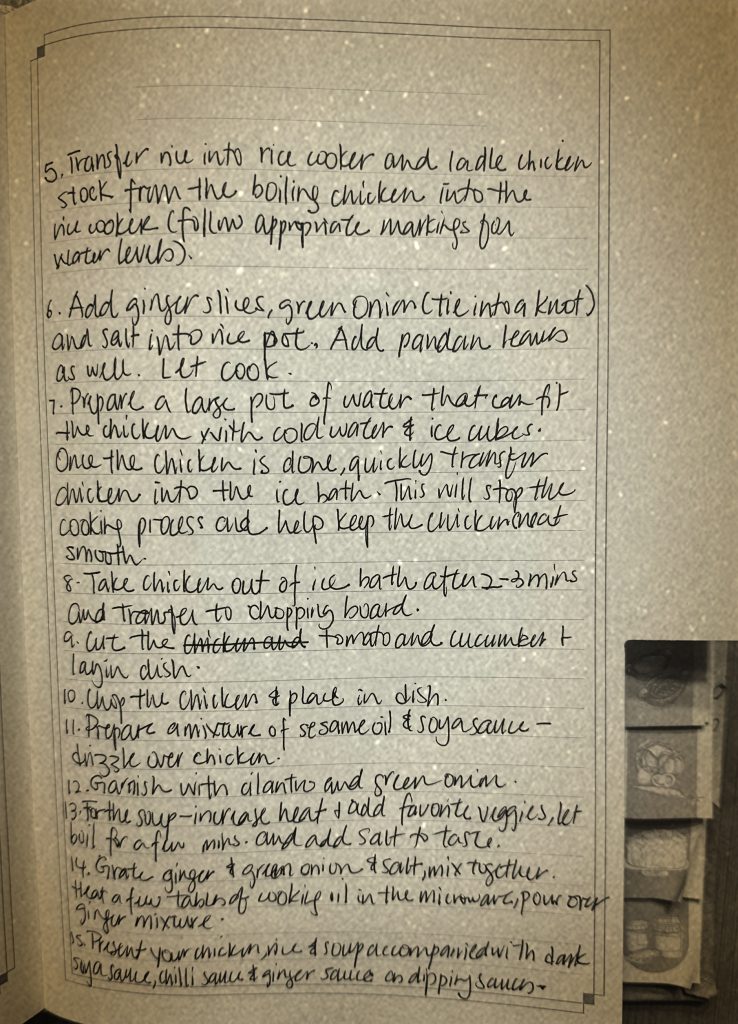 5. Transfer rice into rice cooker and ladle chicken
stock from the boiling chicken into the
rice cooker (follow appropriate markings for
water levels).
6. Add ginger slices, green onion (tie into a knot)
and salt into rice pot. Add pandan leaves
as well. Let cook.
7. Prepare a large pot of water that can fit
the chicken with cold water & ice cubes.
Once the chicken is done, quickly transfer
chicken into the ice bath. This will stop the
cooking process and help keep the chicken meat
smooth.
8. Take chicken out of ice bath after 2-3 mins
and transfer to chopping board.
9. Cut the chicken and tomato and cucumber &
lay in dish.
10. Chop the chicken & place in dish.
11. Prepare a mixture of sesame oil & soya sauce -
drizzle over chicken.
12. Garnish with cilantro and green onion.
13. For the soup - increase heat & add favorite veggies, let
boil for a few mins. and add salt to taste.
14. Grate ginger & green onion & salt, mix together.
Heat a few tables of cooking oil in the microwave, pour over
ginger mixture.
15. Present your chicken, rice & soup accompanied with dark
soya sauce, chilli sauce & ginger sauce as dipping sauces.